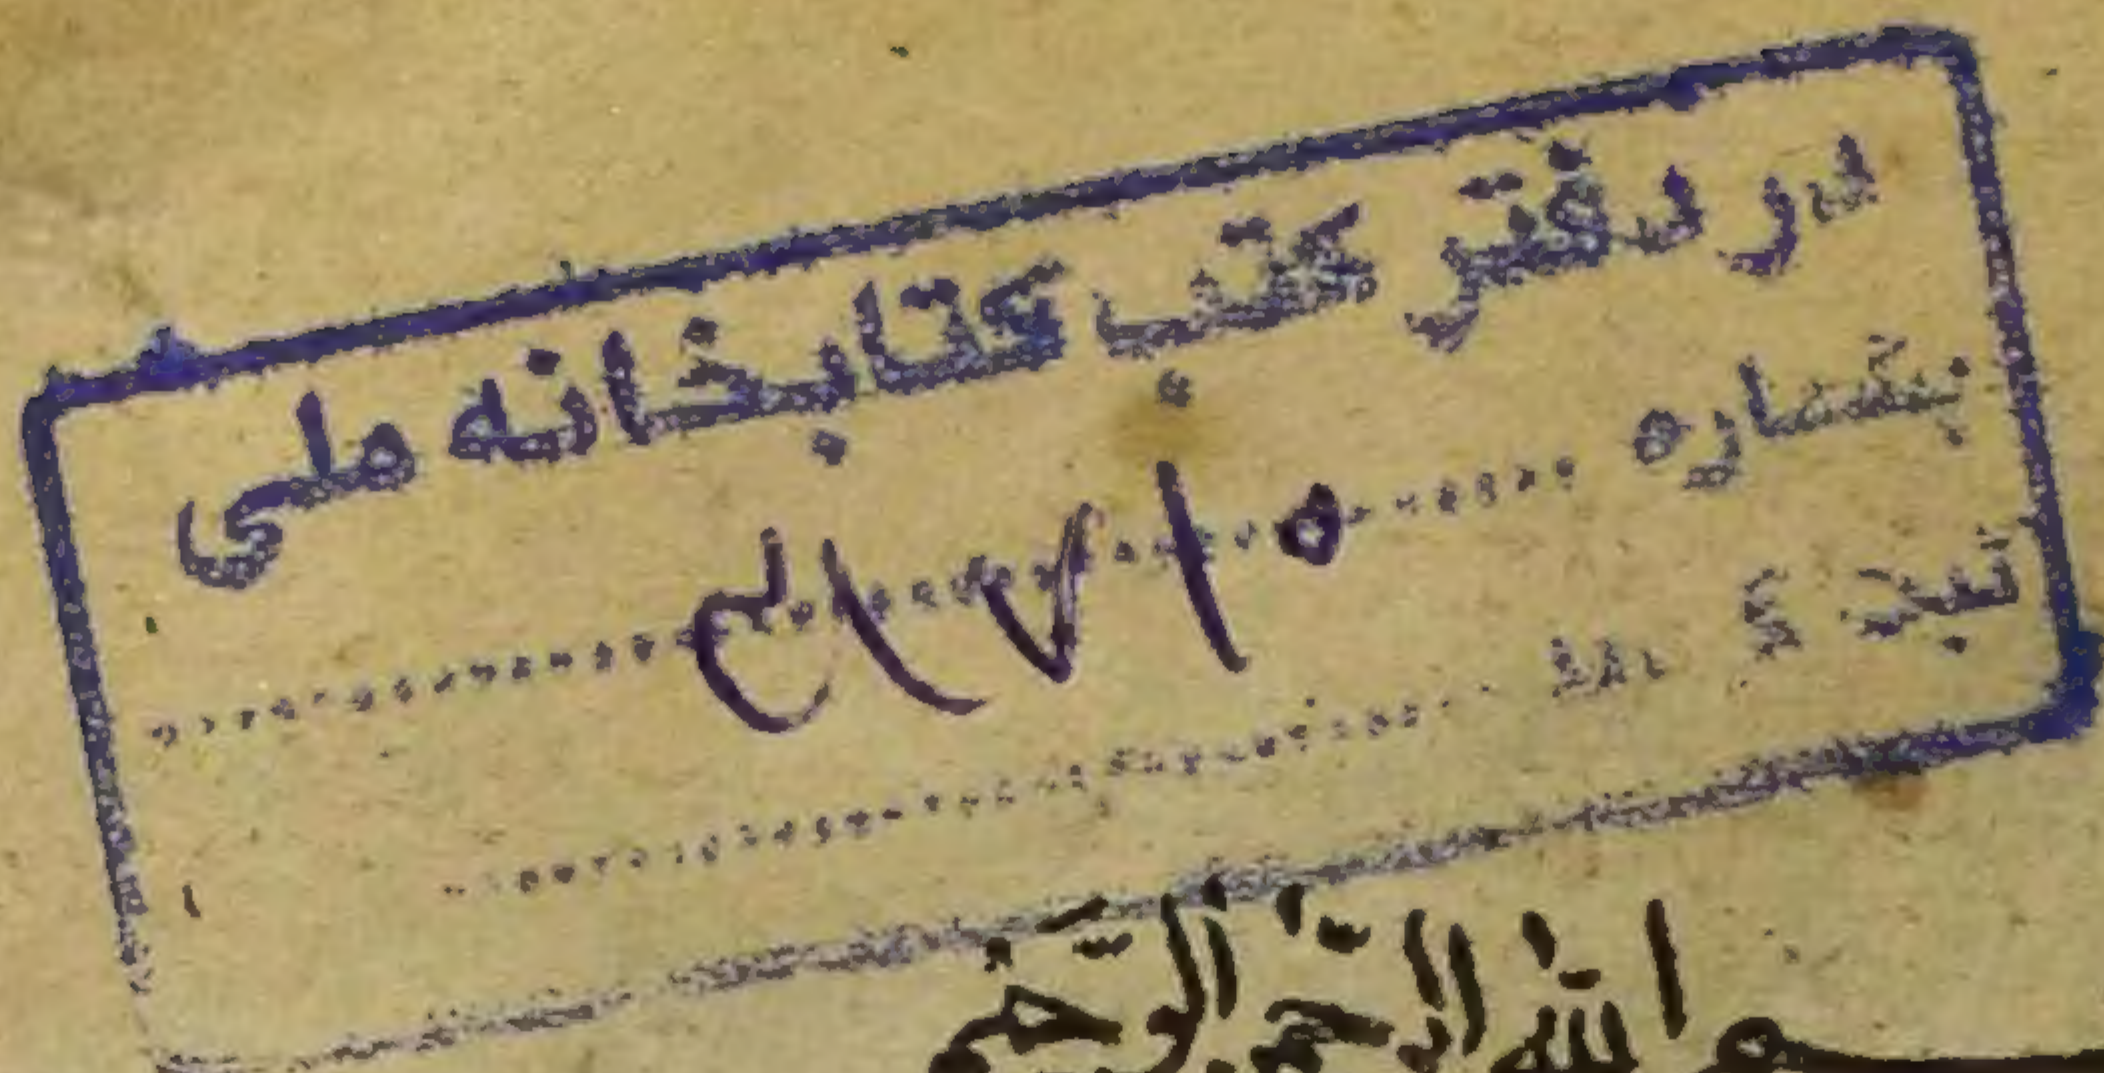 در دفتر کتب کتابخانه ملی
بشماره
ثبت گردید
بسم الله الرحمن الرحیم